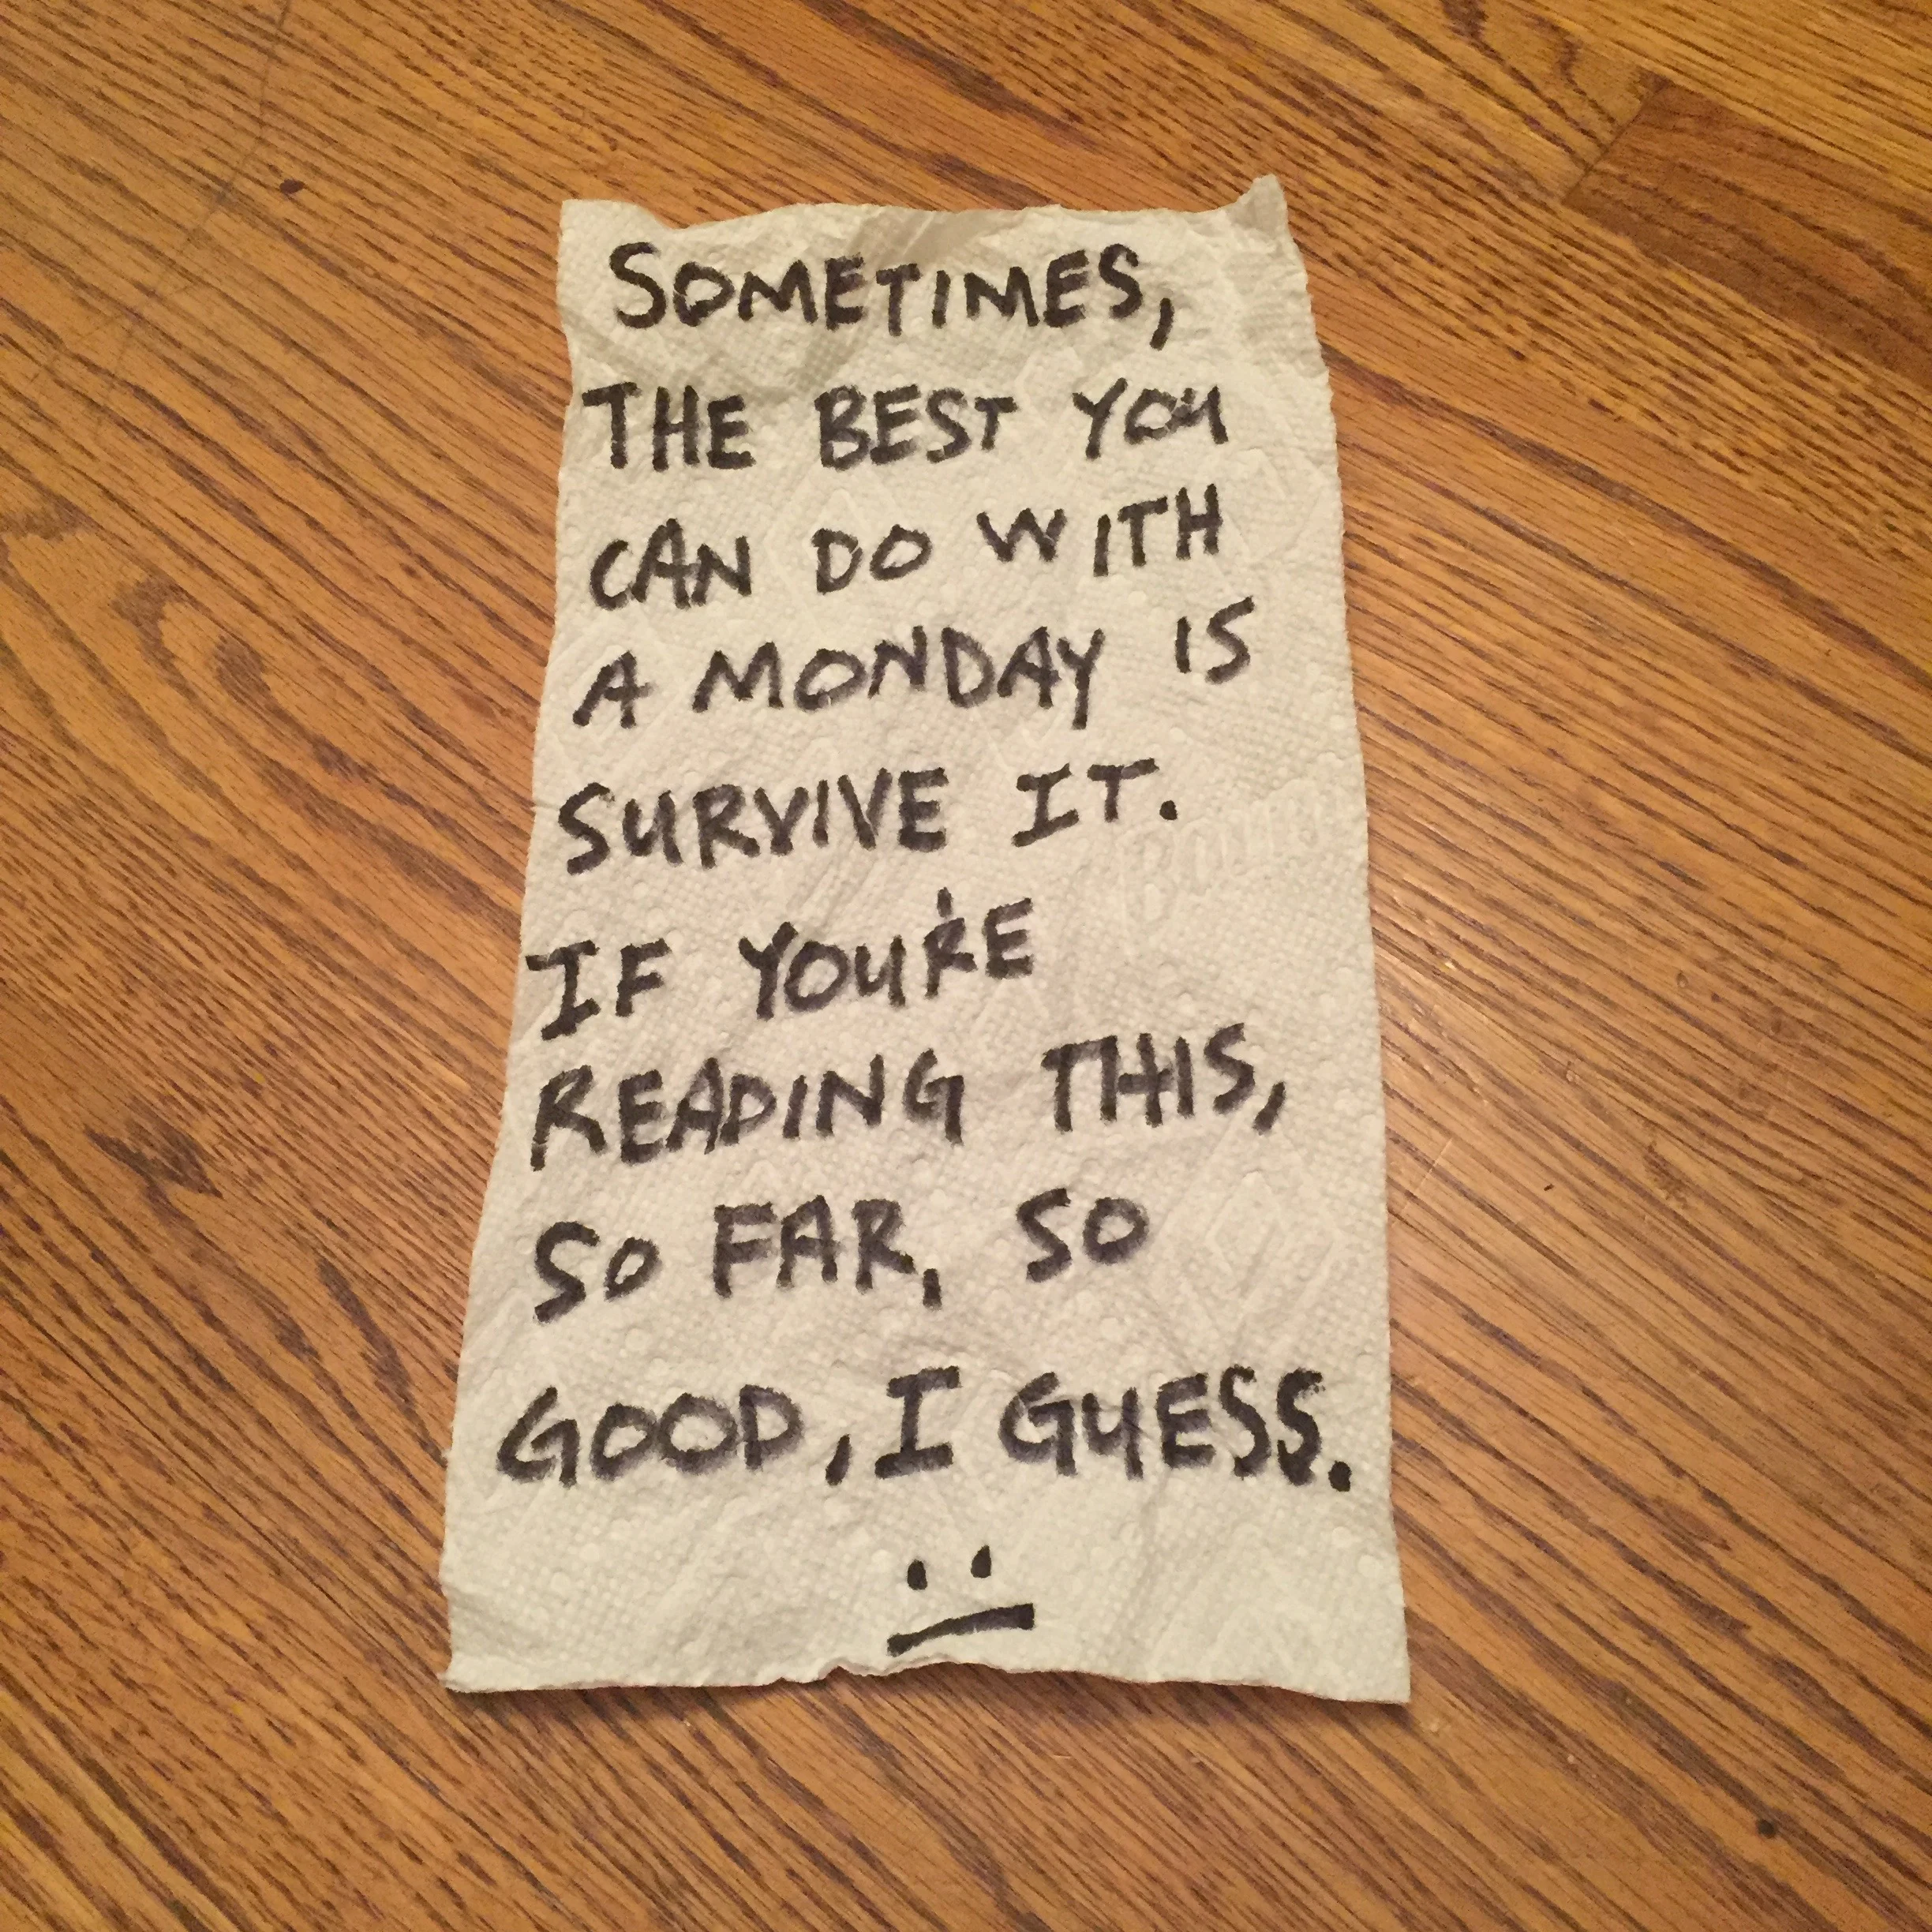 SOMETIMES,
THE BEST YOU
CAN DO WITH
A MONDAY IS
SURVIVE IT.
Bounty
IF YOU'RE
READING THIS,
SO FAR, SO
GOOD, I GUESS.